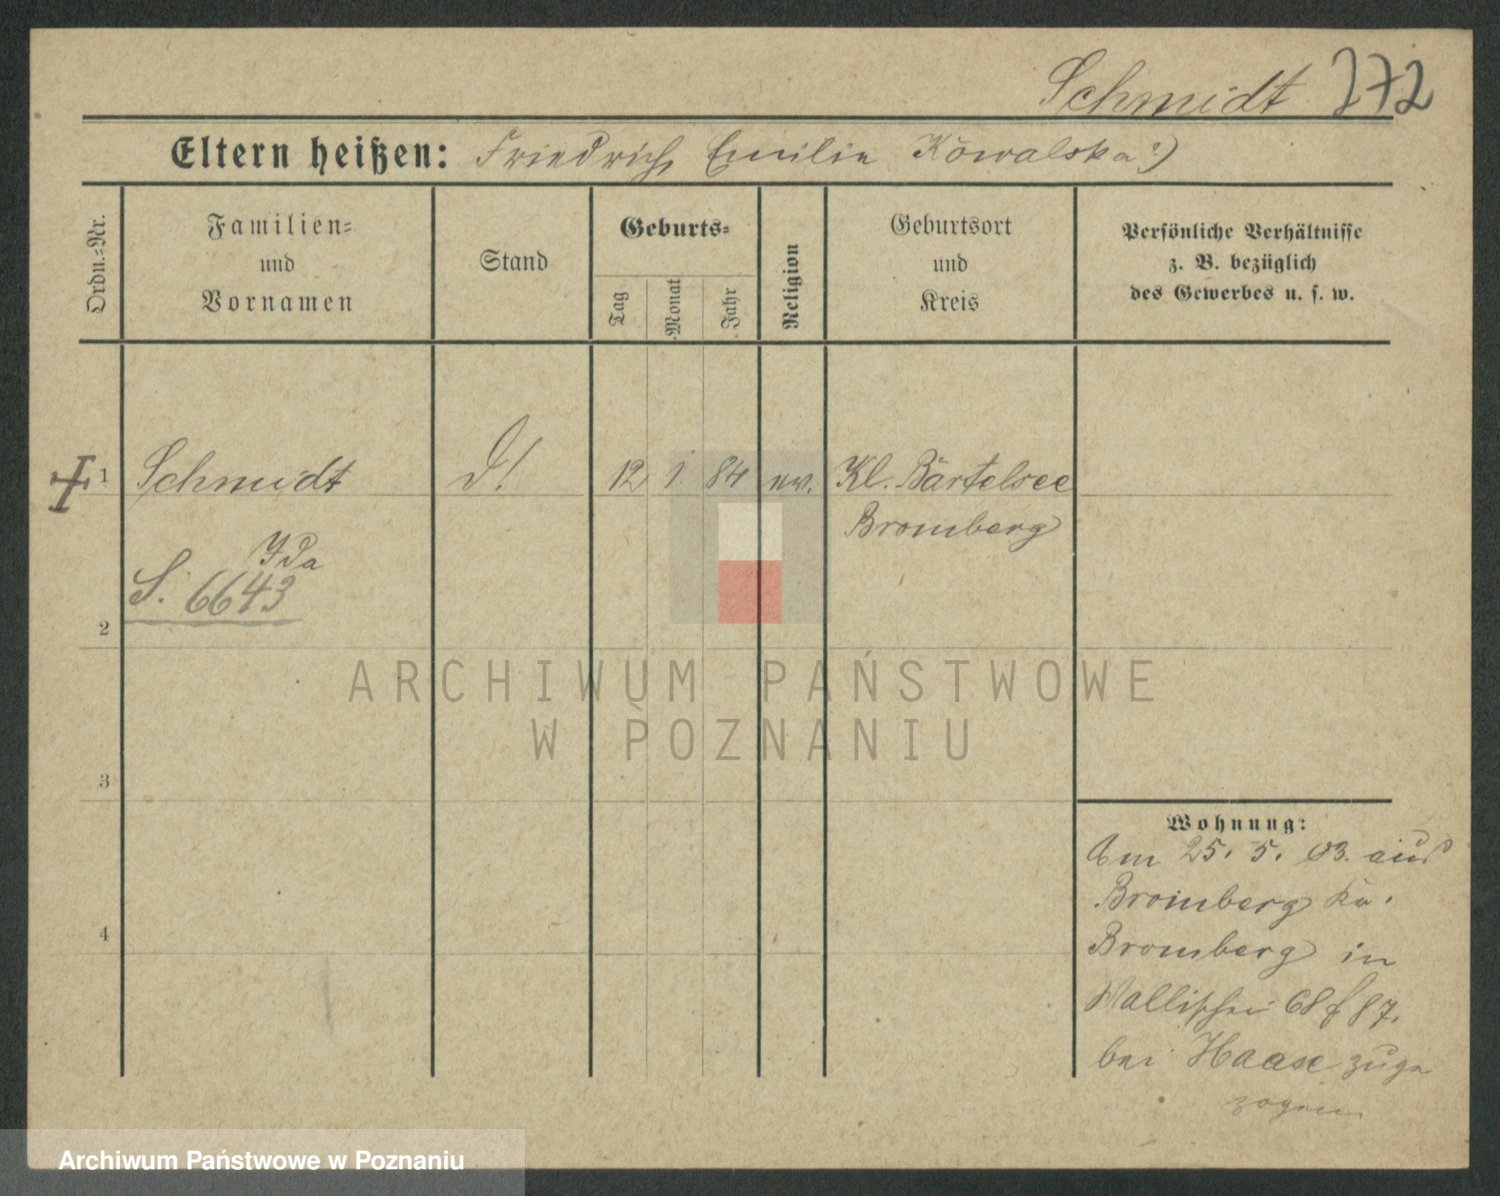 Schmidt 372
Eltern heißen: Friedrich, Emilie Kowalska?)
Ordn.-Nr.
Familien-
und
Vornamen
Stand
Geburts-
Tag
Monat
Jahr
Religion
Geburtsort
und
Kreis
Persönliche Verhältnisse
z. B. bezüglich
des Gewerbes u. s. w.
1 Schmidt 12 1 84 ev. Kl. Bartelsee
Bromberg
Ida
S. 6643
2
ARCHIWUM PAŃSTWOWE
W POZNANIU
3
Wohnung:
Am 25. 5. 03. aus
Bromberg Kr.
4
Bromberg in
Wallischei 68
bei Haase zuge
zogen
Archiwum Państwowe w Poznaniu